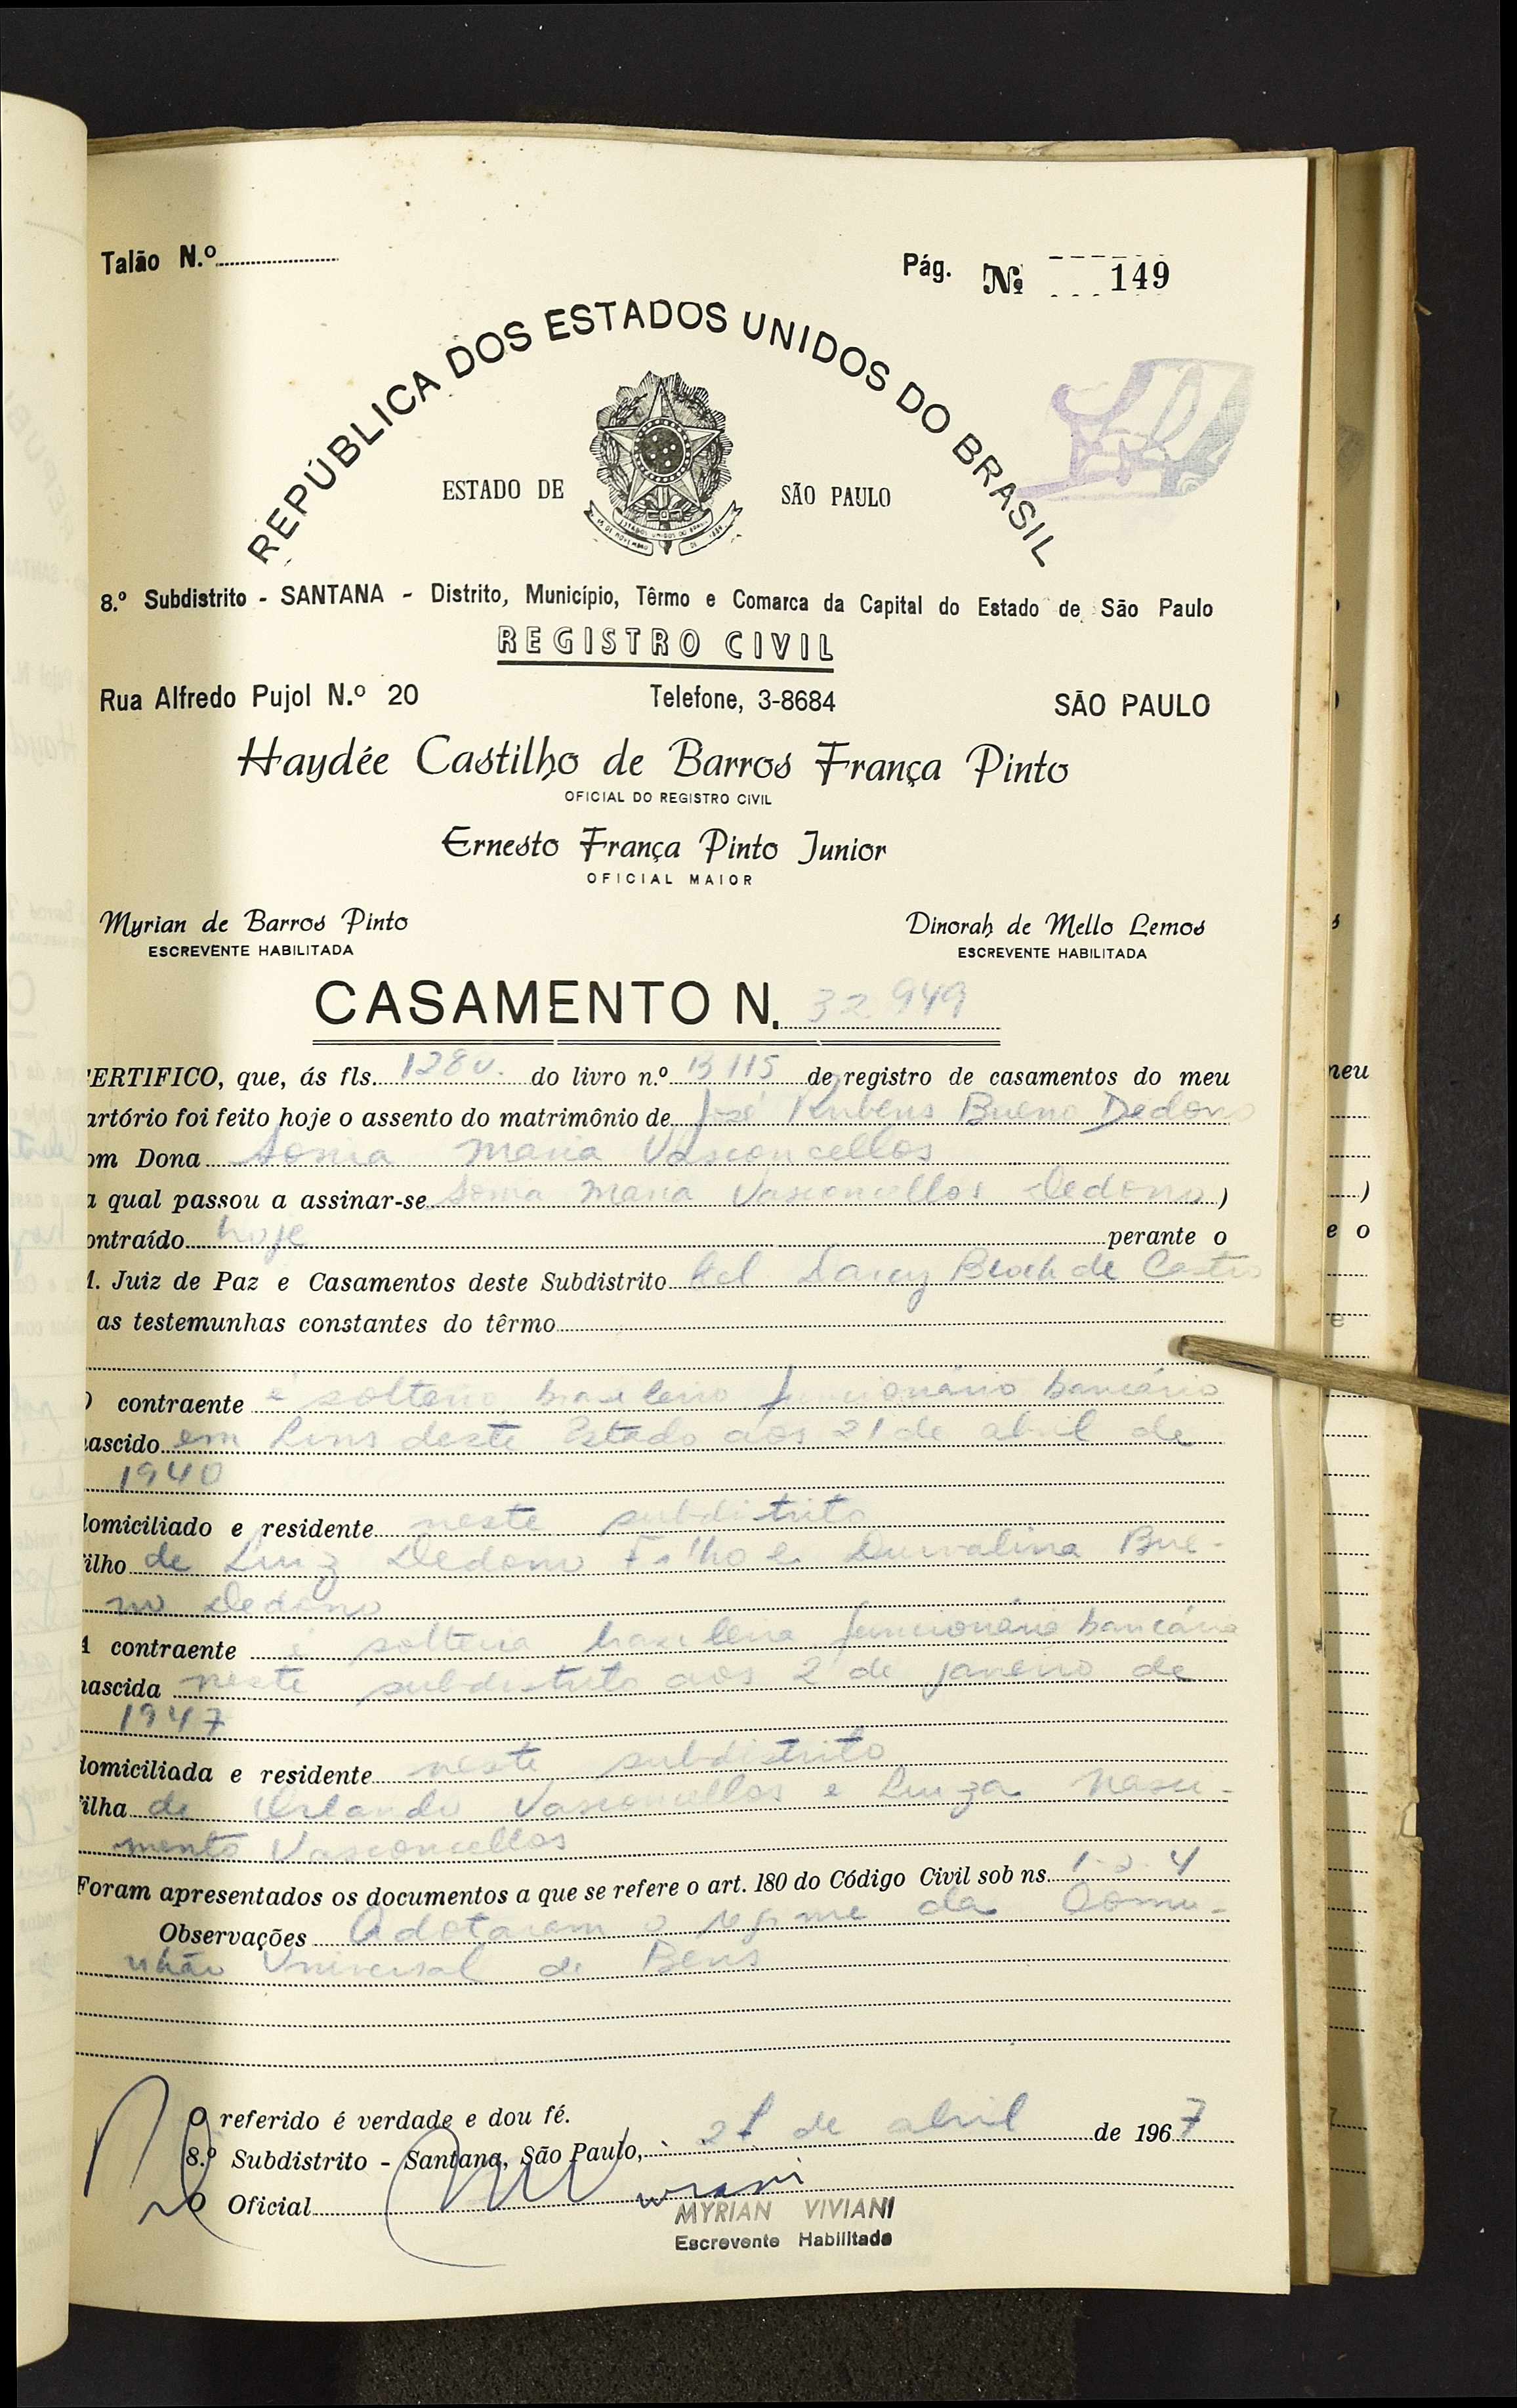 Talão N.º
Pág. Nº 149
REPÚBLICA DOS ESTADOS UNIDOS DO BRASIL
ESTADO DE SÃO PAULO
8.º Subdistrito - SANTANA - Distrito, Município, Têrmo e Comarca da Capital do Estado de São Paulo
REGISTRO CIVIL
Rua Alfredo Pujol N.º 20 Telefone, 3-8684 SÃO PAULO
Haydée Castilho de Barros França Pinto
OFICIAL DO REGISTRO CIVIL
Ernesto França Pinto Junior
OFICIAL MAIOR
Myrian de Barros Pinto Dinorah de Mello Lemos
ESCREVENTE HABILITADA ESCREVENTE HABILITADA
CASAMENTO N. 32 949
ERTIFICO, que, ás fls. 128v. do livro n.º B 115 de registro de casamentos do meu
artório foi feito hoje o assento do matrimônio de José Rubens Bueno Dedono
om Dona Sonia Maria Vasconcellos
a qual passou a assinar-se Sonia Maria Vasconcellos Dedono)
ontraído hoje perante o
M. Juiz de Paz e Casamentos deste Subdistrito de Castro
as testemunhas constantes do têrmo
O contraente é solteiro brasileiro funcionário bancário
ascido em Lins deste Estado aos 21 de abril de
1940
domiciliado e residente neste subdistrito
filho de Luiz Dedono Filho e Durvalina Bue-
no Dedono
A contraente é solteira brasileira funcionária bancária
nascida neste subdistrito aos 2 de janeiro de
1947
domiciliada e residente neste subdistrito
filha de Orlando Vasconcellos e Luiza Nasci-
mento Vasconcellos
Foram apresentados os documentos a que se refere o art. 180 do Código Civil sob ns. 1-2-4
Observações Adotaram o regime da Comu-
nhão Universal de Bens
O referido é verdade e dou fé.
8.º Subdistrito - Santana, São Paulo, 21 de abril de 1967
O Oficial
MYRIAN VIVIANI
Escrevente Habilitada